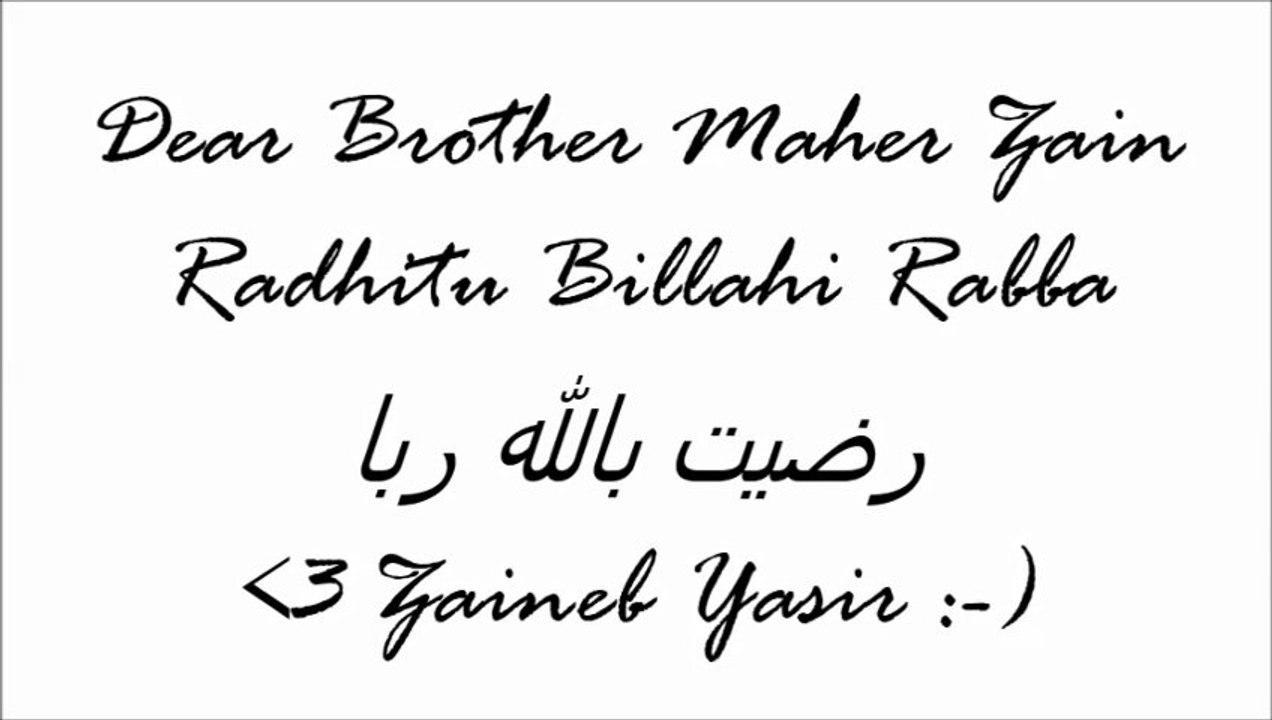 Dear Brother Maher Zain
Radhitu Billahi Rabba
رضيت بالله ربا
<3 Zaineb Yasir :-)